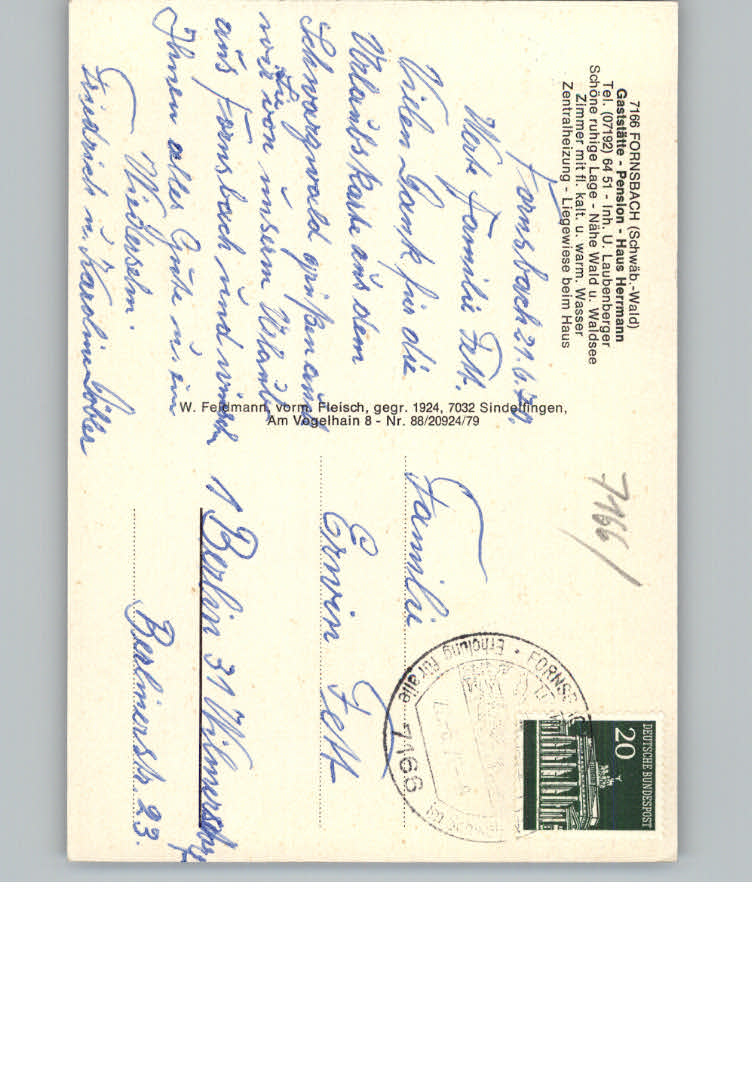 7166 FORNSBACH (Schwäb.-Wald)
Gaststätte - Pension - Haus Herrmann
Tel. (07192) 64 51 - Inh. U. Laubenberger
Schöne ruhige Lage - Nähe Wald u. Waldsee
Zimmer mit fl. kalt. u. warm. Wasser
Zentralheizung - Liegewiese beim Haus
Fornsbach 21.6.70,
Werte Familie Fett.
Vielen Dank für die
Urlaubskarte aus dem
Schwarzwald grüßen auch
wir von unserm Urlaub
aus Fornsbach und wünsch
Ihnen alles Gute u. ein
Wiedersehn.
Friedrich u. Karoline
W. Feldmann, vorm. Fleisch, gegr. 1924, 7032 Sindelfingen,
Am Vogelhain 8 - Nr. 88/20924/79
7166
Familie
Erwin Fett
1 Berlin 31 Wilmersdorf
Berlinerstr. 23.
FORNSBACH
Erholung für alle
7166
DEUTSCHE BUNDESPOST
20